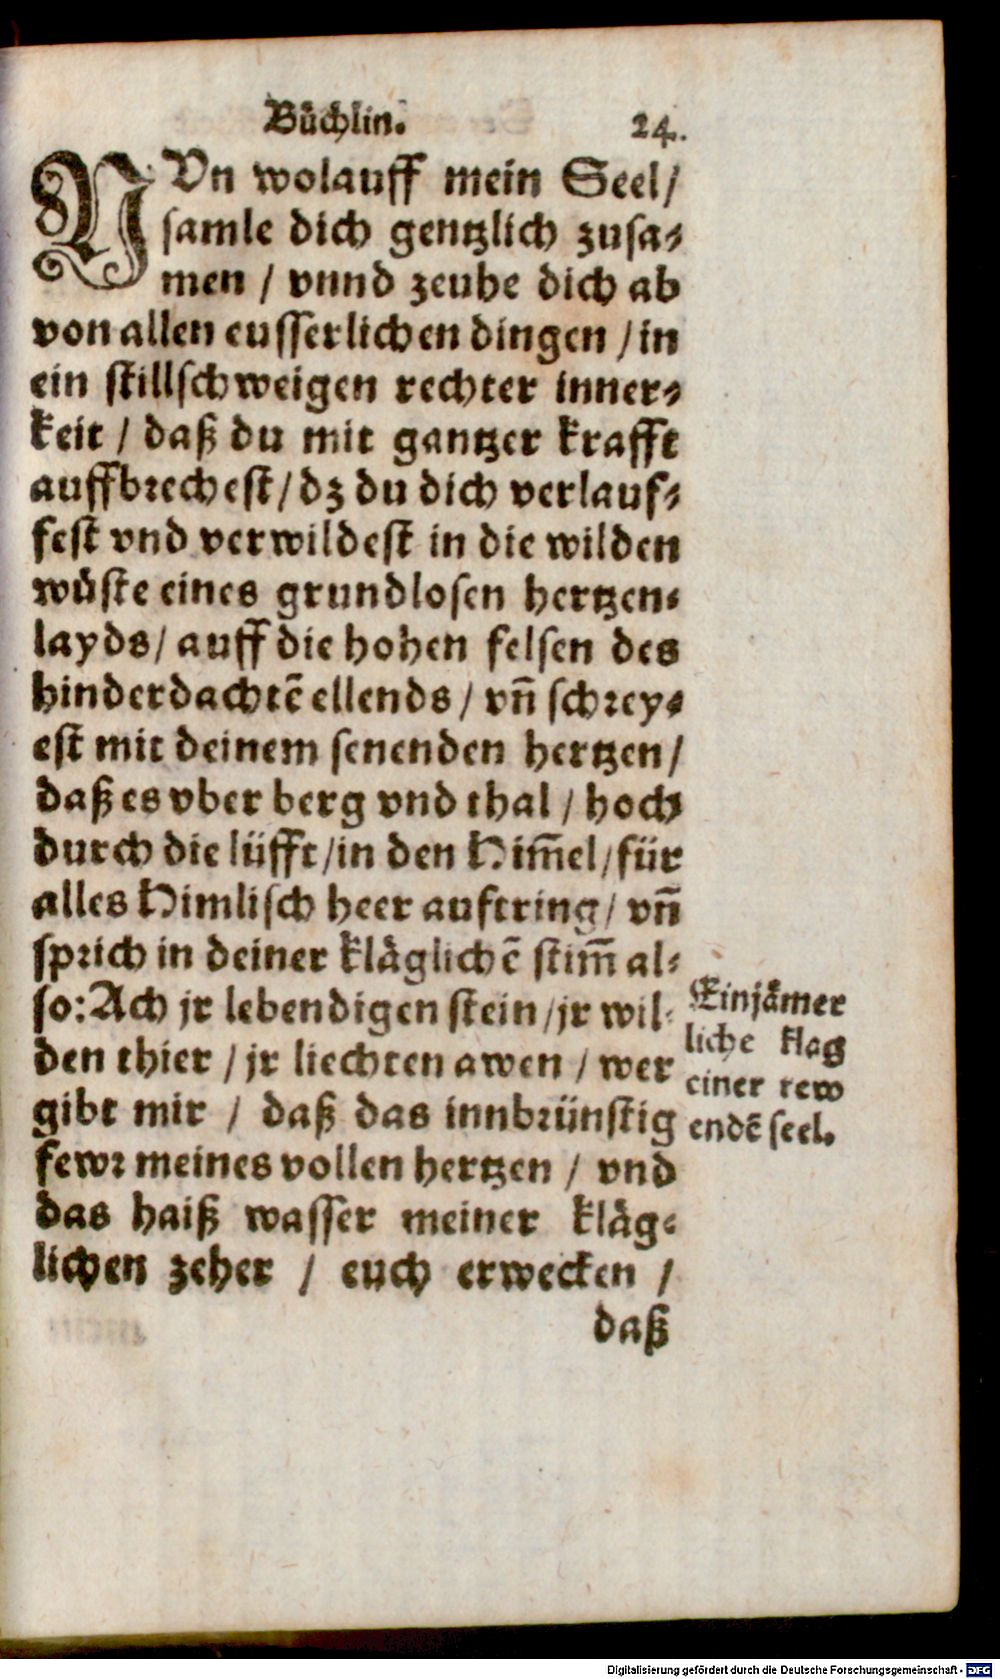 Büchlin. 24.
NVn wolauff mein Seel/
samle dich gentzlich zusa-
men / vnnd zeuhe dich ab
von allen eusserlichen dingen / in
ein stillschweigen rechter inner-
keit / daß du mit gantzer krafft
auffbrechest / dz du dich verlauf-
fest vnd verwildest in die wilden
wüste eines grundlosen hertzen-
layds / auff die hohen felsen des
hinderdachtē ellends / vn̄ schrey-
est mit deinem senenden hertzen /
daß es vber berg vnd thal / hoch
durch die lüfft / in den Him̄el / für
alles Himlisch heer auftring / vn̄
sprich in deiner kläglichē stim̄ al-
so: Ach jr lebendigen stein / jr wil-
den thier / jr liechten awen / wer
gibt mir / daß das innbrünstig
fewr meines vollen hertzen / vnd
das haiß wasser meiner kläg-
lichen zeher / euch erwecken /
daß
Ein jämer
liche klag
einer rew
endē seel.
Digitalisierung gefördert durch die Deutsche Forschungsgemeinschaft - DFG